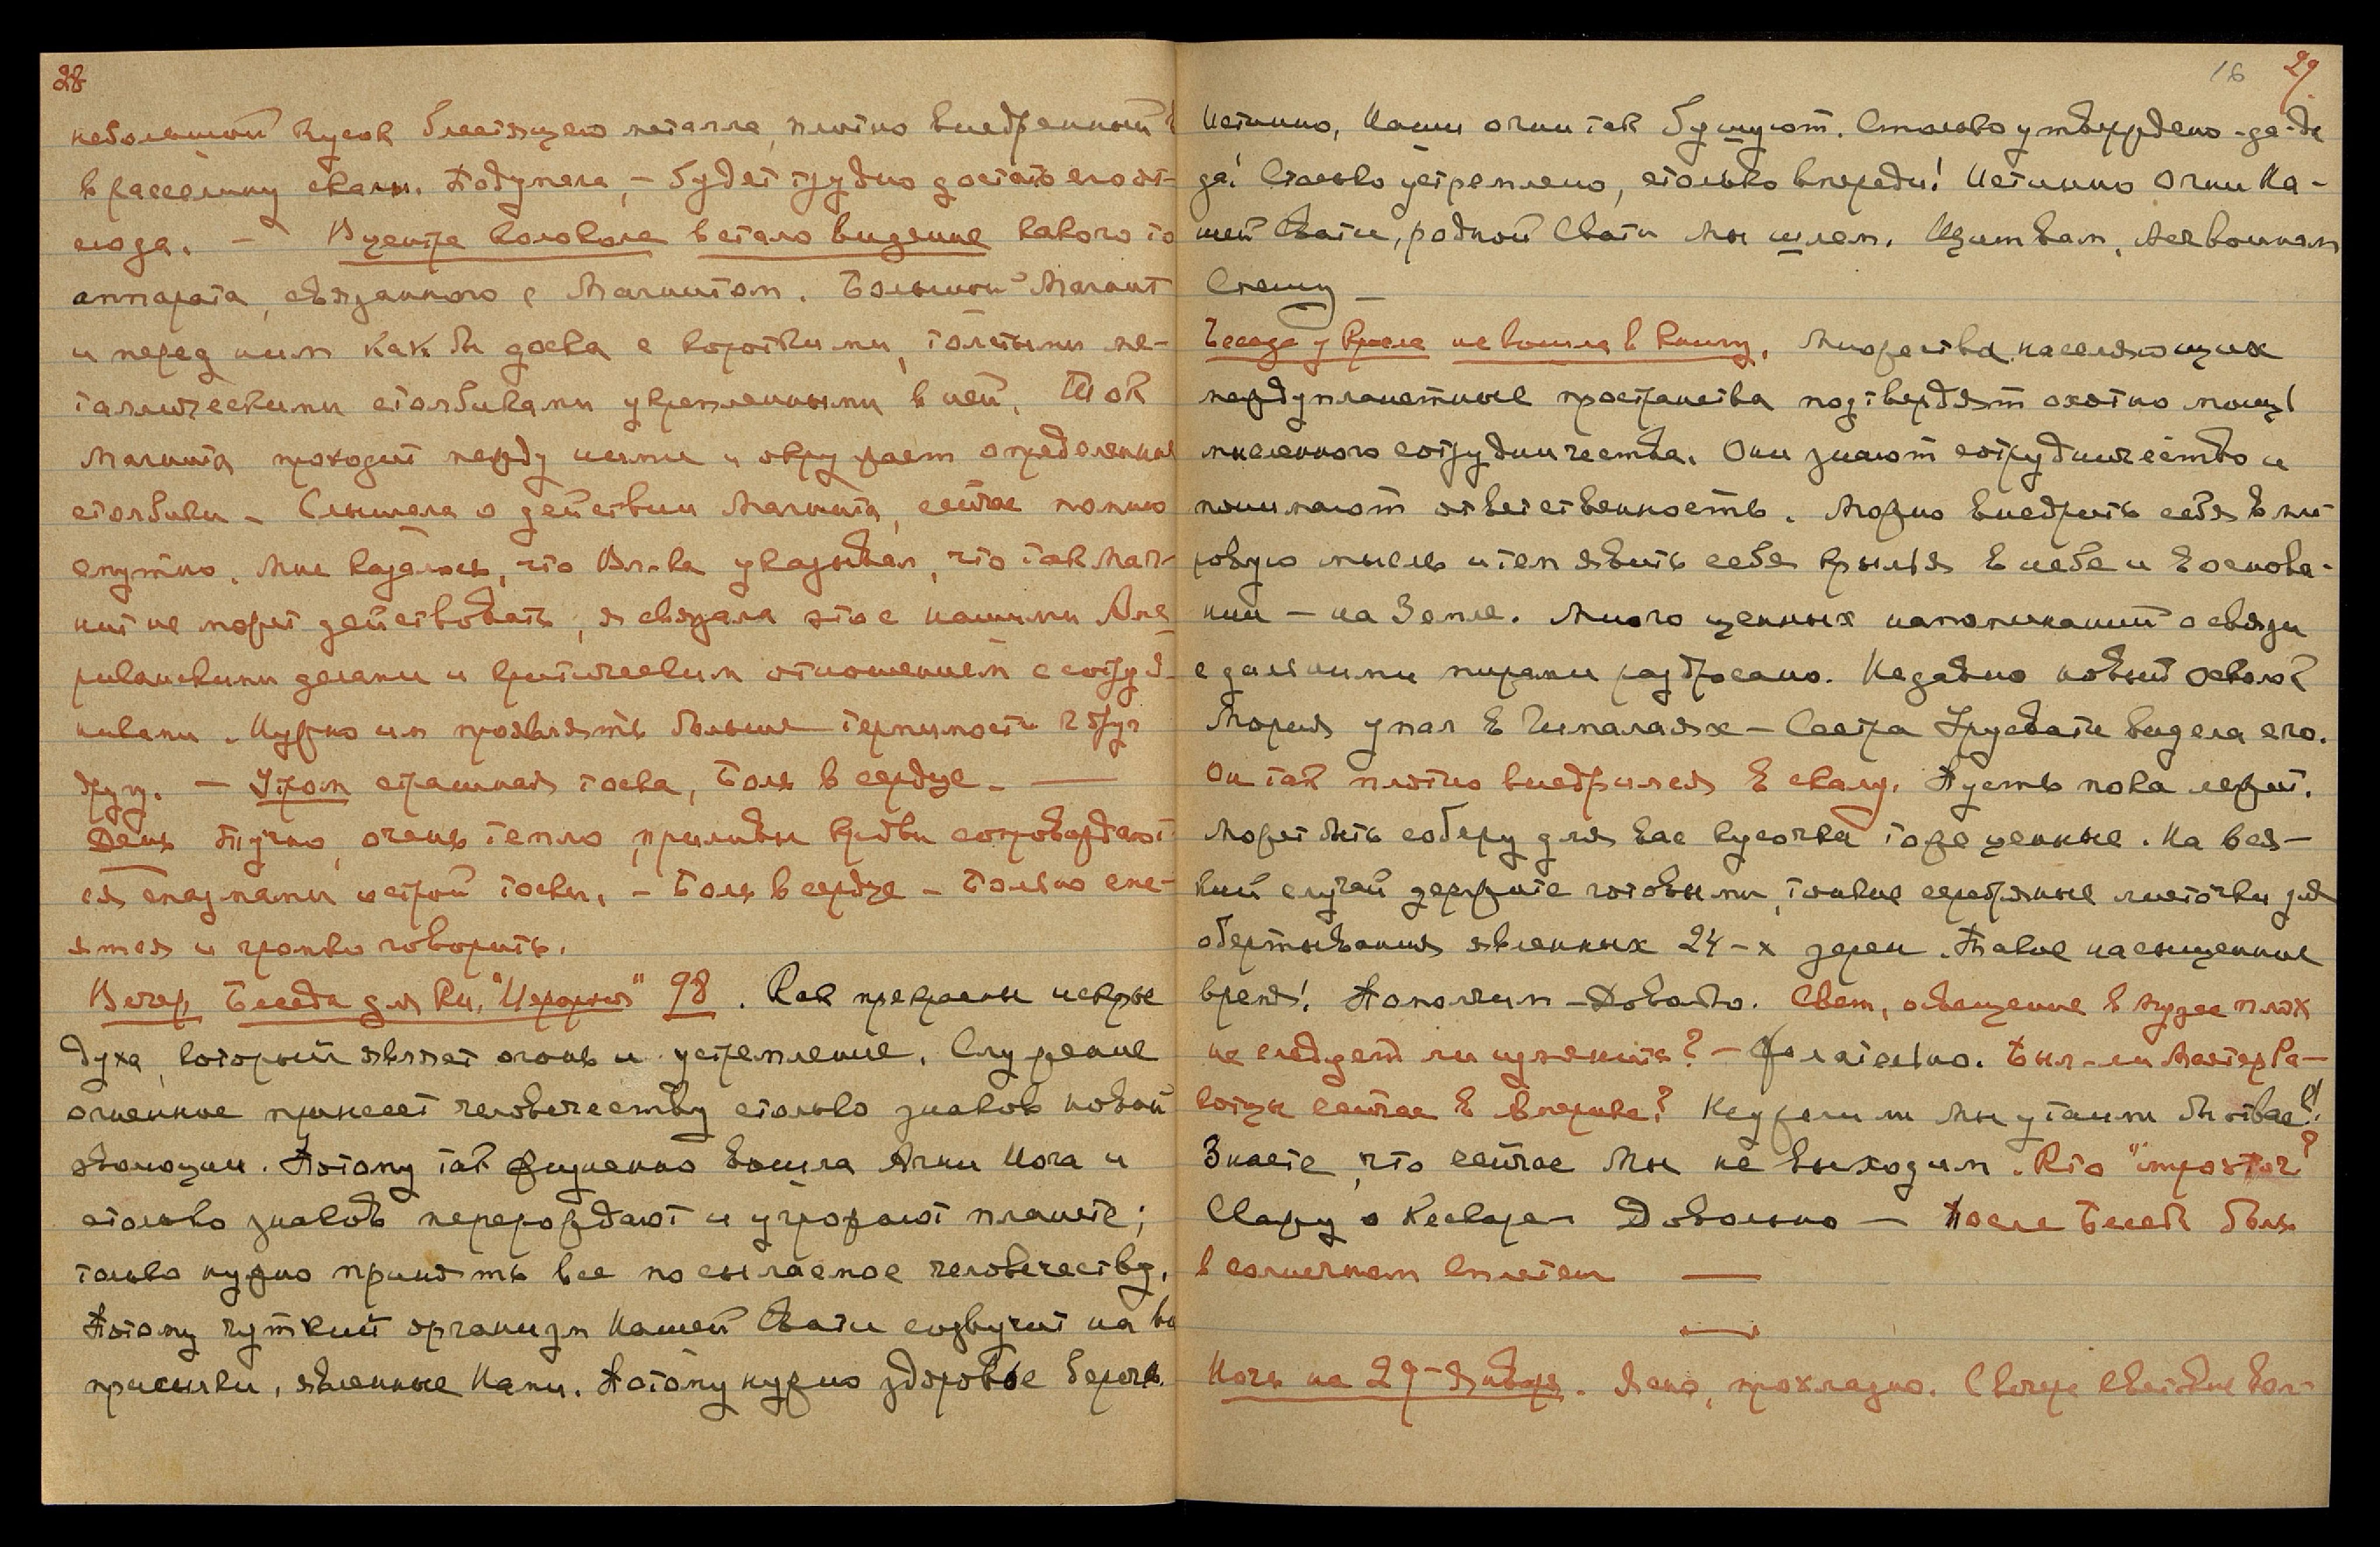 28
небольшой кусок блестящего металла, плотно внедренный
в расселину скалы. Подумала, – будет трудно достать его от-
сюда. – В центре колокола встало видение какого то
аппарата, связанного с Магнитом. Большой Магнит
и перед ним как бы доска с короткими, толстыми ме-
таллическими столбиками укрепленными в ней. Ток
Магнита проходит между ними и окружает определенные
столбики – Слышала о действии Магнита, сейчас помню
смутно. Мне казалось, что Вл-ка указывал, что так Маг-
нит не может действовать, я связала это с нашими Аме-
риканскими делами и критическим отношением с сотруд-
никами. Нужно им проявлять больше терпимости друг
другу. – Утром страшная тоска, боль в сердце. —
День Тучно, очень тепло, приливы крови сопровождают-
ся спазмами острой тоски. – Боль в сердце – Больно сме-
яться и громко говорить.
Вечер. Беседа для Кн. "Иерархия" 98. Как прекрасны искры
духа, который являет огонь и устремление. Служение
огненное принесет человечеству столько знаков новой
эволюции. Потому так жизненно вошла Агни Йога и
столько знаков перерождают и угрожают планете;
только нужно принять все посылаемое человечеству.
Потому чуткий организм Нашей Свати созвучит на все
присылки, явленные Нами. Потому нужно здоровье беречь.
16 29
Истинно, Наши огни так бушуют. Столько утверждено - да - да
да! Столько устремлено, столько впереди! Истинно огни На-
шей Свати, родной Свати Мы шлем. Щит Вам,
Спешу –
Беседа у Кресла не вошла в книгу. Множества населяющих
междупланетные пространства подтвердят охотно мощь
мысленного сотрудничества. Они знают сотрудничество и
понимают ответственность. Можно внедрить себя в ми-
ровую мысль и тем явить себе крылья в небе и в основа-
нии – на Земле. Много ценных напоминаний о связи
с дальними мирами разбросано. Недавно новый осколок
Мория упал в Гималаях – Сестра Урусвати видела его.
Он так плотно внедрился в скалу. Пусть пока лежит.
Может быть соберу для вас кусочки тоже ценные. На вся-
кий случай держите готовыми, тонкие серебряные листочки для
обертывания явленных 24-х зерен. Такое насыщенное
время! Помолчим – Довольно. Свет, освещение в Музее плох
не следует ли изменить? – Желательно. Был-ли Мастер Ра-
коцы сейчас в Америке? Неужели мы утаим бы от вас?!
Знаете, что сейчас Мы не выходим. Кто
Скажу о Довольно – После Беседы боль
в солнечном сплетении —
Ночь на 29-Января. Ясно, прохладно. С вечера